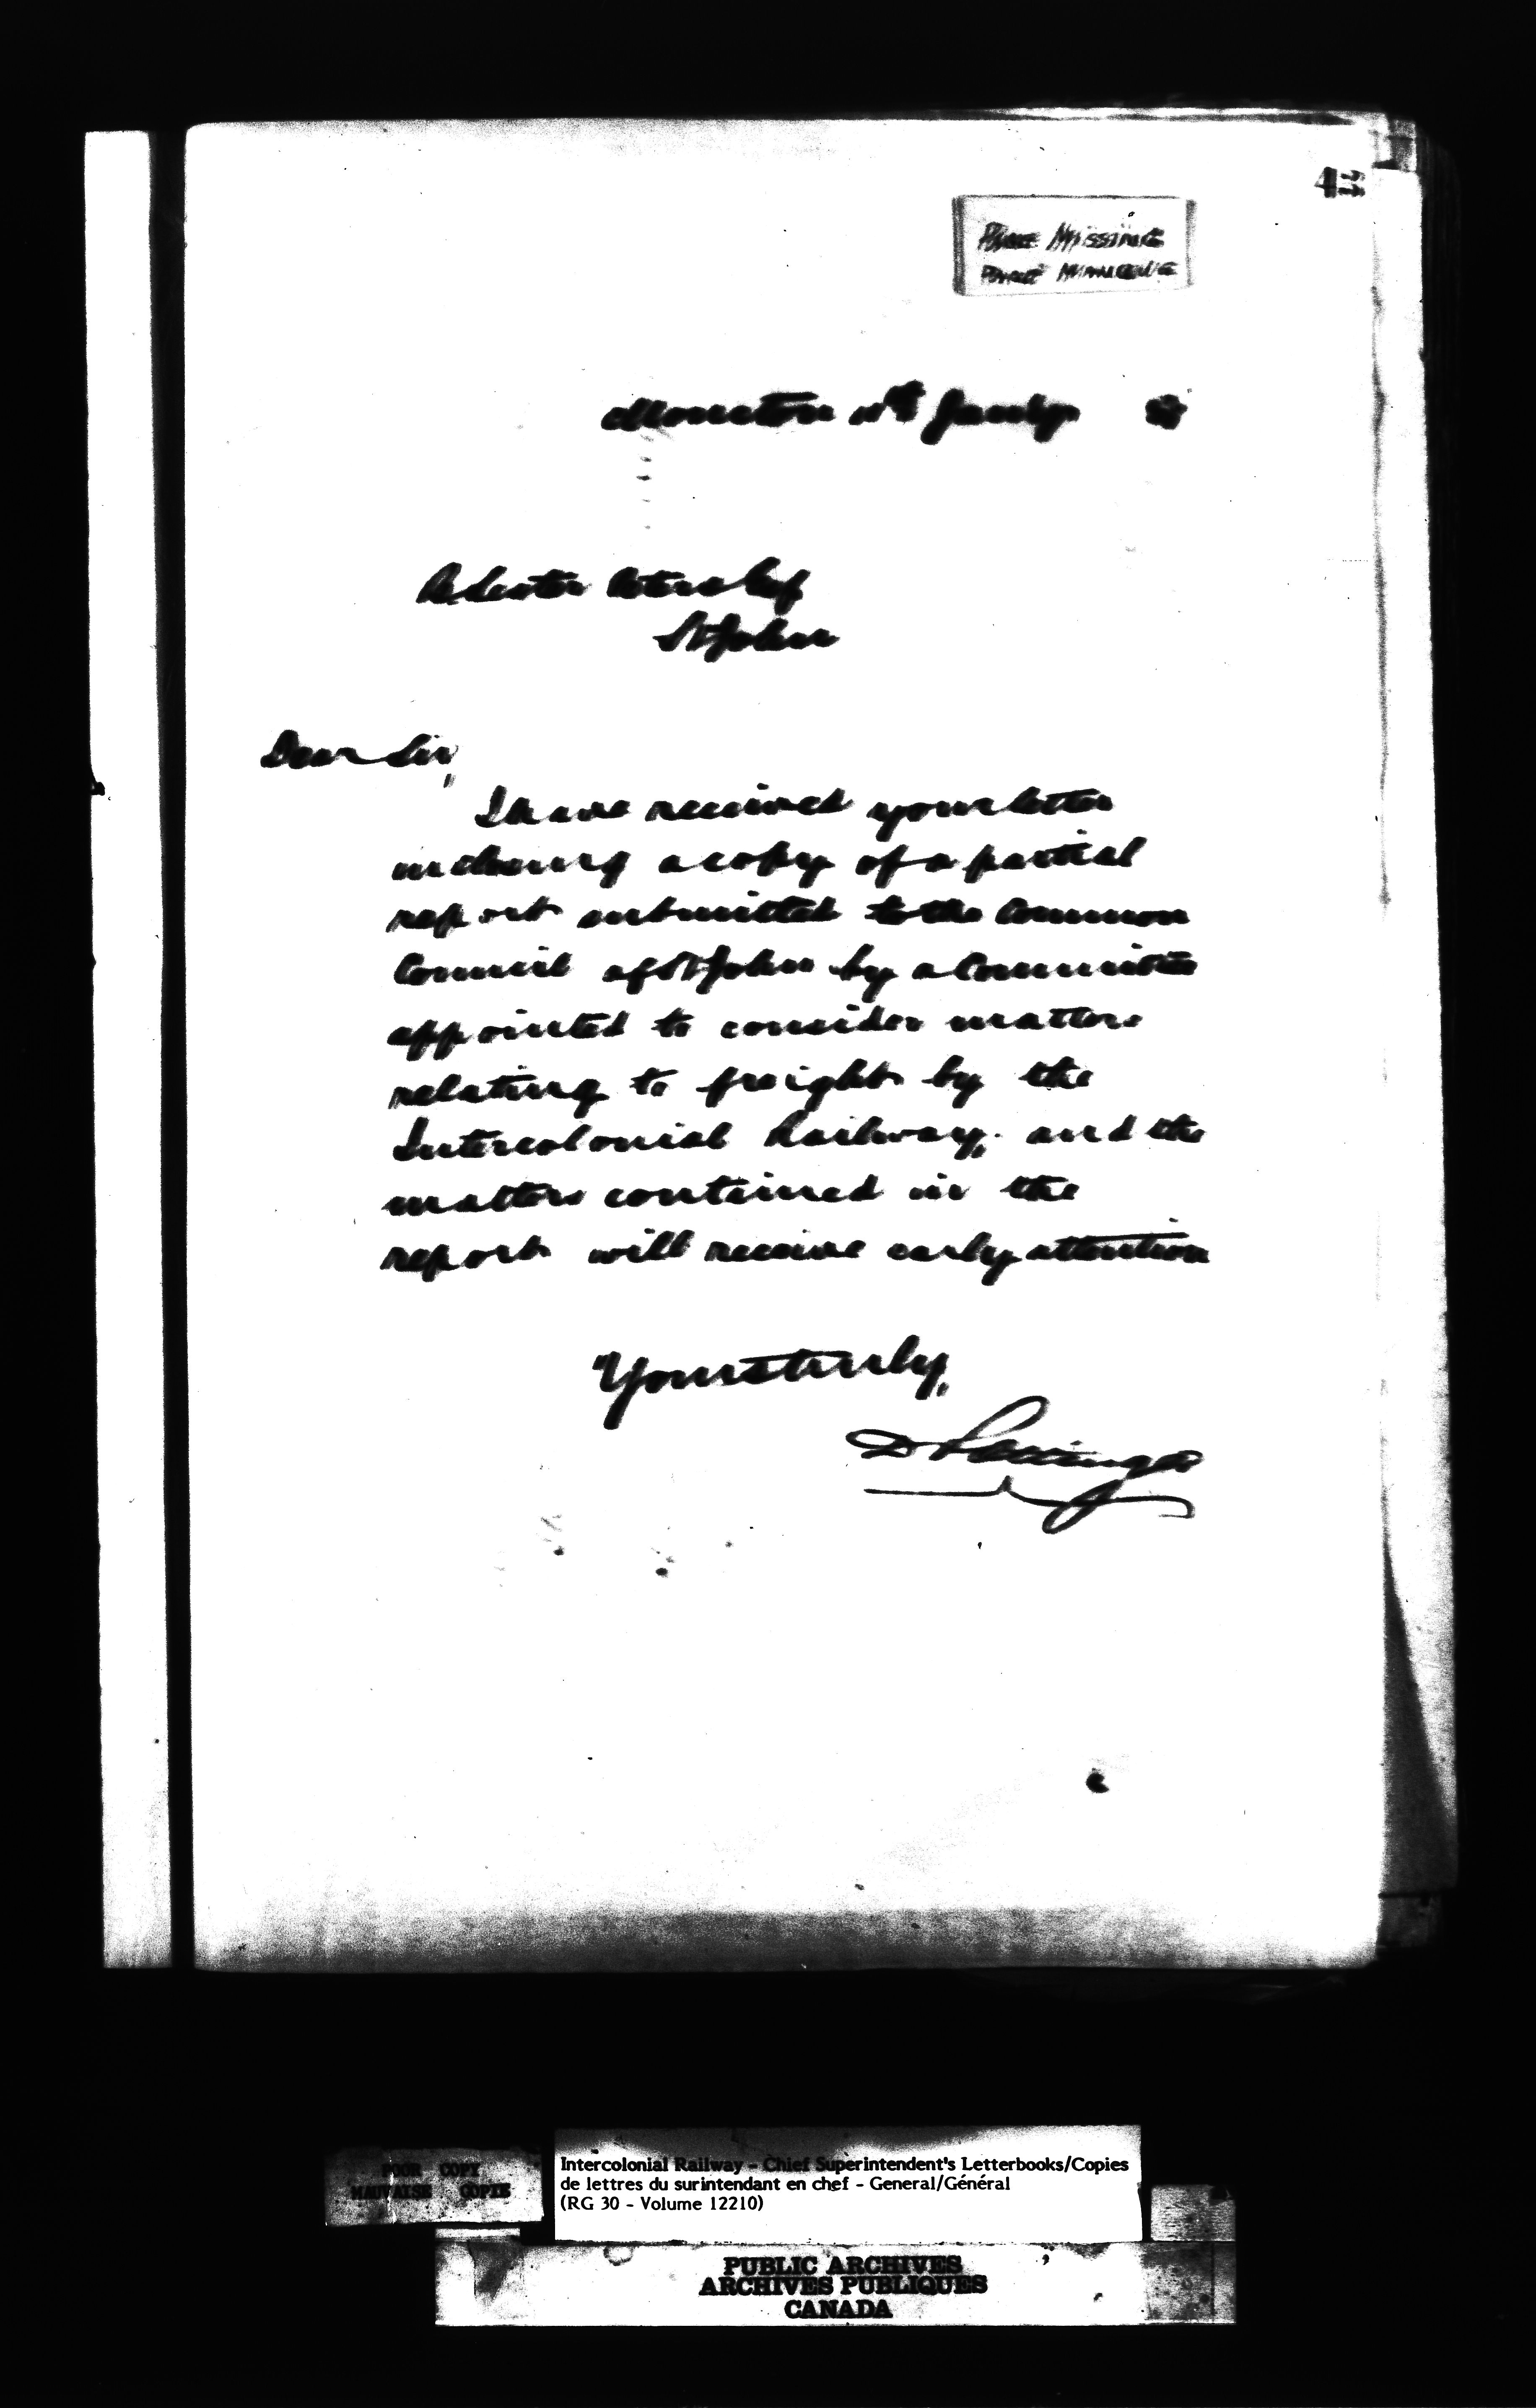 PAGE MISSING
PAGE MANQUE
Moncton 11th Jany
St John
Dear Sir,
I have received your letter
inclosing a copy of a partial
report submitted to the Common
Council of St John by a Committee
appointed to consider matters
relating to freight by the
Intercolonial Railway, and the
matters contained in the
report will receive early attention
Yours truly,
D Pottinger
POOR COPY
MAUVAISE COPIE
Intercolonial Railway - Chief Superintendent's Letterbooks/Copies
de lettres du surintendant en chef - General/Général
(RG 30 - Volume 12210)
PUBLIC ARCHIVES
ARCHIVES PUBLIQUES
CANADA